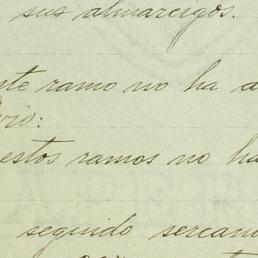 sus almarcigos.
te ramo no ha
estos ramos no ha
seguido sercan